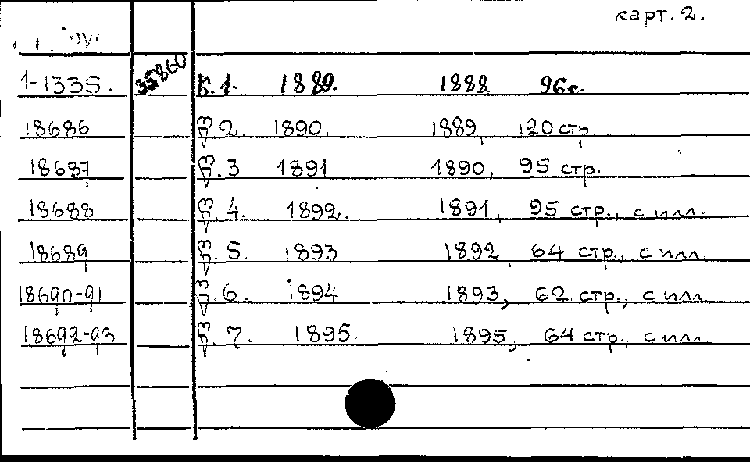 карт. 2.
1-1335. 35860 В.1. 1889. 1888 96с.
18686 В 2. 1890. 1889, 120 стр
18687 В.3 1891 1890, 95 стр.
18688 В.4. 1892. 1891, 95 стр., с илл.
18689 В.5. 1893 1892, 64 стр., с илл.
18690-91 В.6. 1894 1893, 62 стр., с илл.
18692-93 В.7. 1895. 1895, 64 стр., с илл.